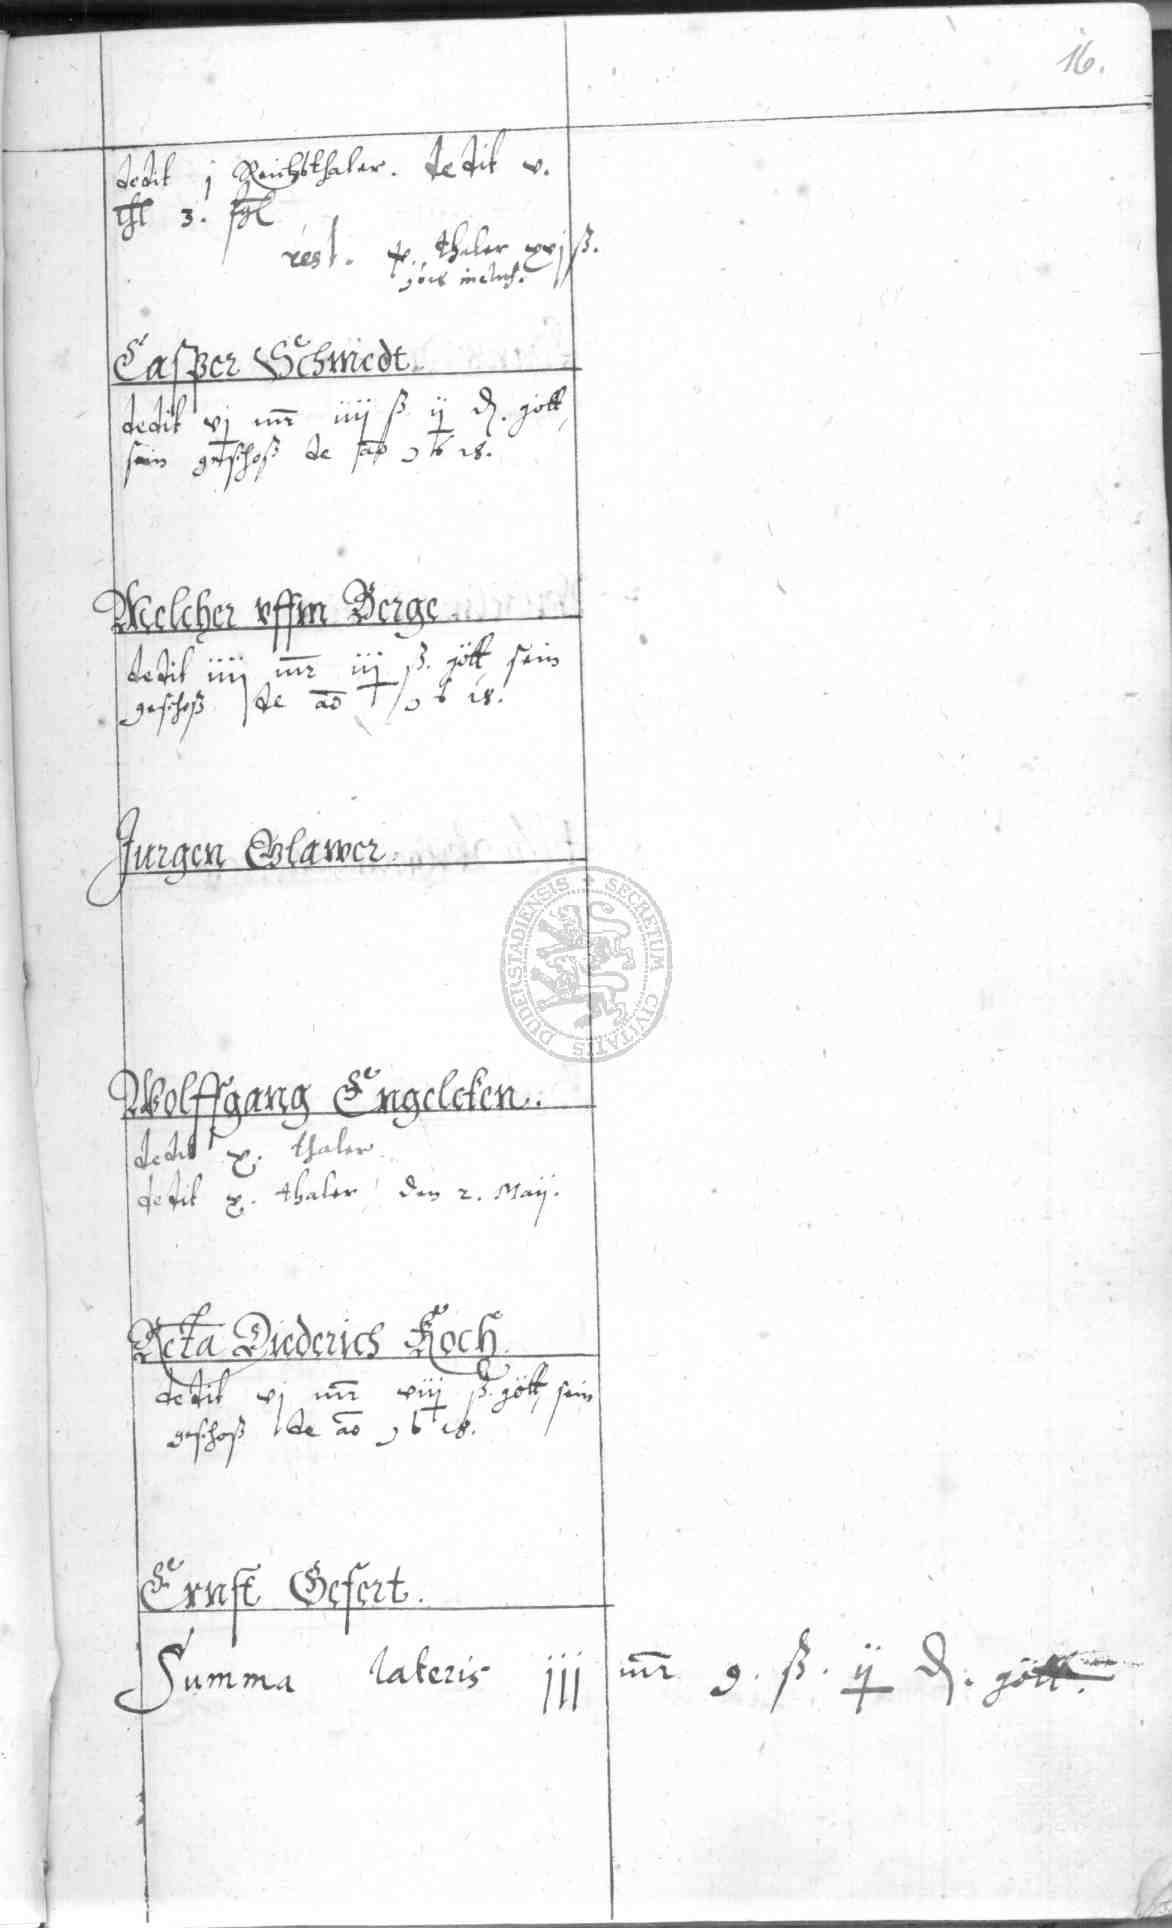 16.
dedit j Reichsthaler. dedit v.
thl 3. ßgl
rest. x. thaler xxj ß.
Casper Schmedt.
dedit vj mr iiij ß ij d. gött
sein geschoß de ao 1618.
Melcher vffm Berge
dedit iiij mr iij ß. gött sein
geschoß de ao 1618.
Jurgen Glawer.
SECRETUM CIVITATIS DUDERSTADIENSIS
Wolffgang Engelcken.
dedit x. thaler
dedit x. thaler den 2. Maij.
Relta Diederich Koch.
dedit vj mr viij ß. gött sein
geschoß de ao 1618.
Ernst Gesert.
Summa lateris iij mr 9. ß. ij d. gött.